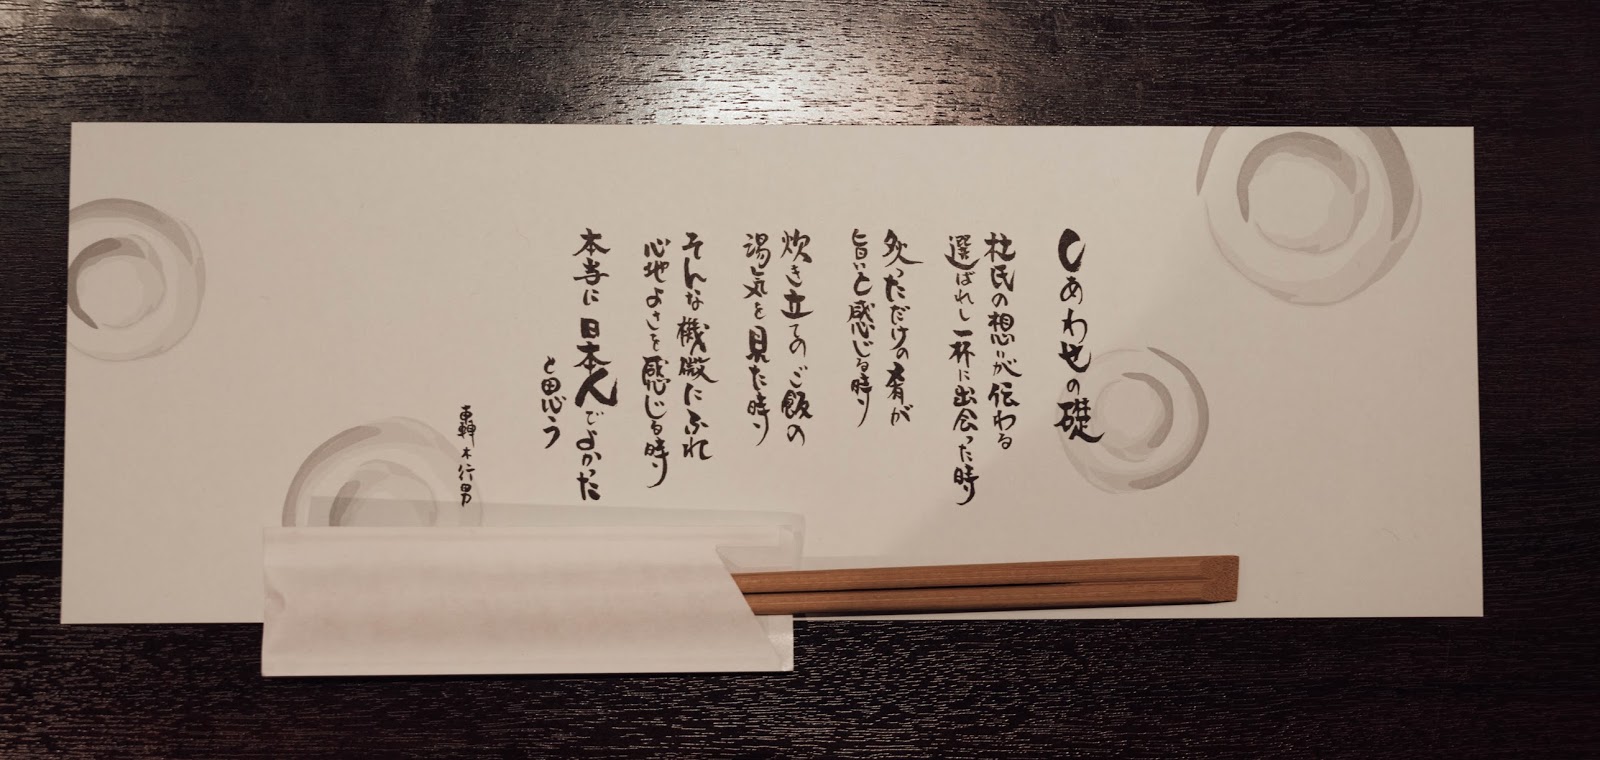 しあわせの礎
杜氏の想いが伝わる
選ばれし一杯に出会った時
炙っただけの肴が
旨いと感じる時
炊き立ての、ご飯の
湯気を見た時
そんな機微にふれ
心地よさを感じる時
本当に日本人でよかった
と思う
木行男